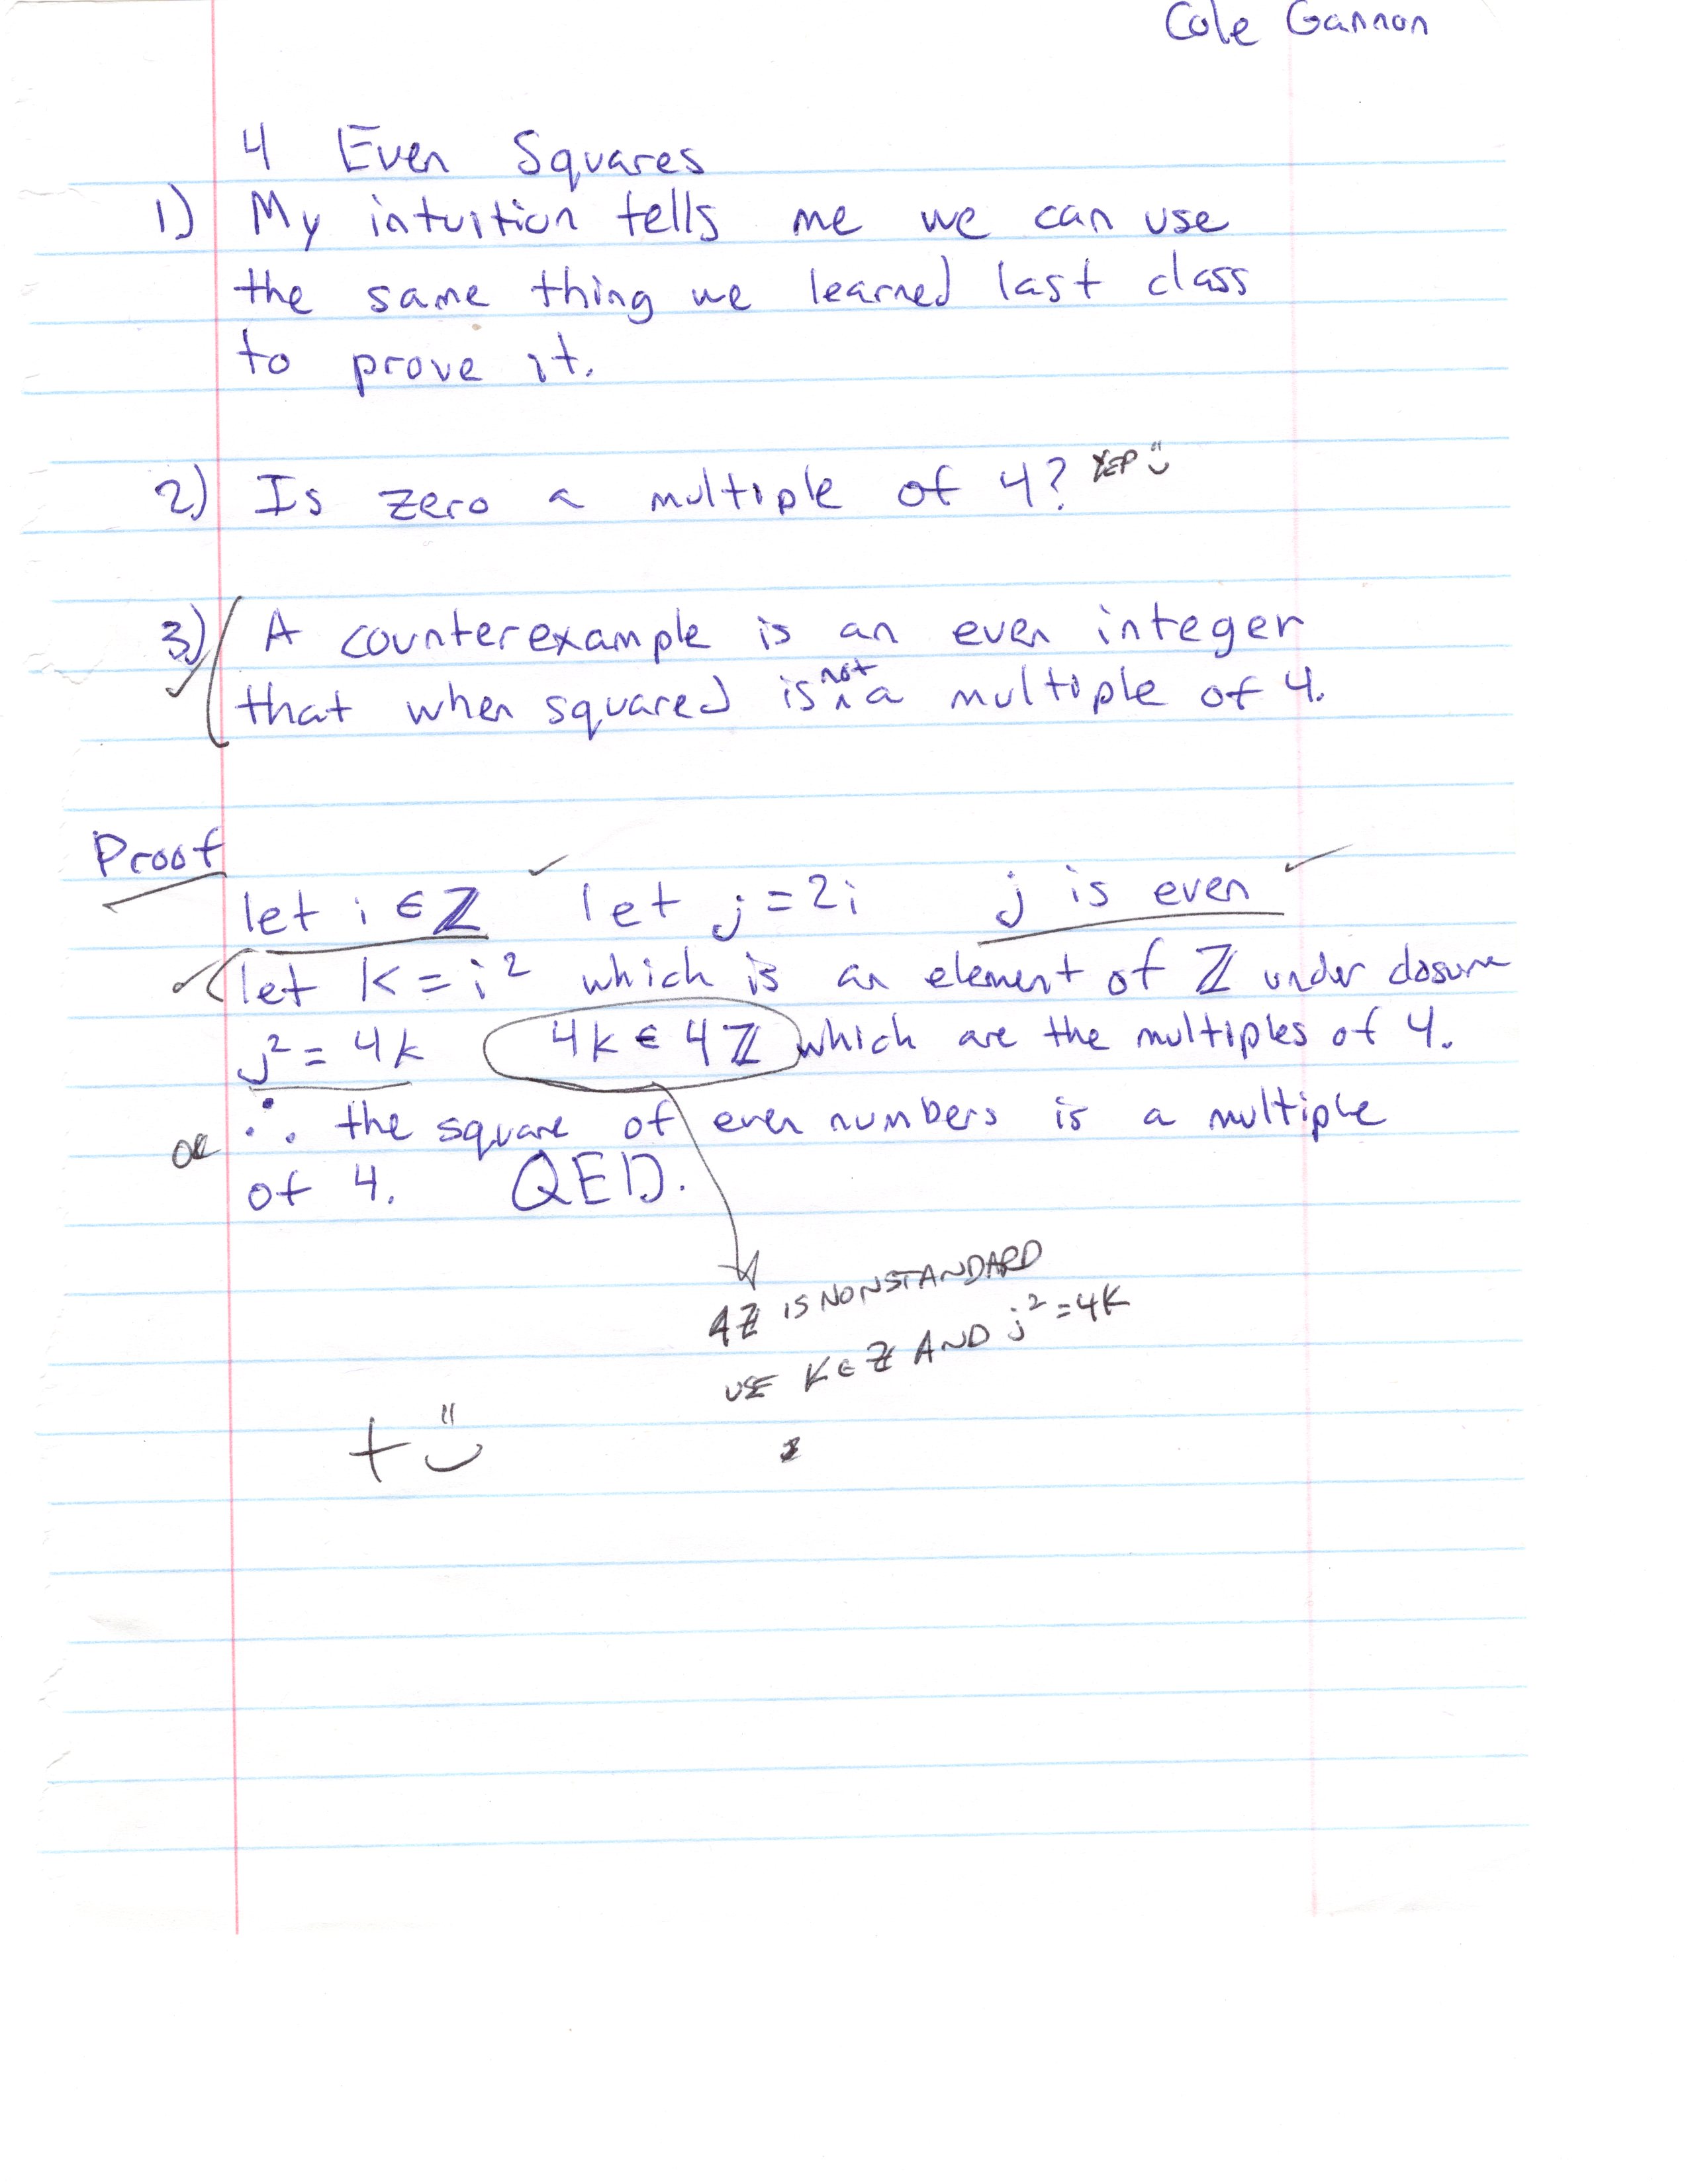 Cole Gannon
4 Even Squares
1) My intuition tells me we can use
the same thing we learned last class
to prove it.
2) Is zero a multiple of 4? YEP
3) A counterexample is an even integer
that when squared is not a multiple of 4.
Proof
let i ∈ ℤ let j = 2i j is even
let k = i² which is an element of ℤ under closure
j² = 4k 4k ∈ 4ℤ which are the multiples of 4.
∴ the square of even numbers is a multiple
of 4. QED.
4ℤ IS NONSTANDARD
USE K ∈ ℤ AND j² = 4K
+